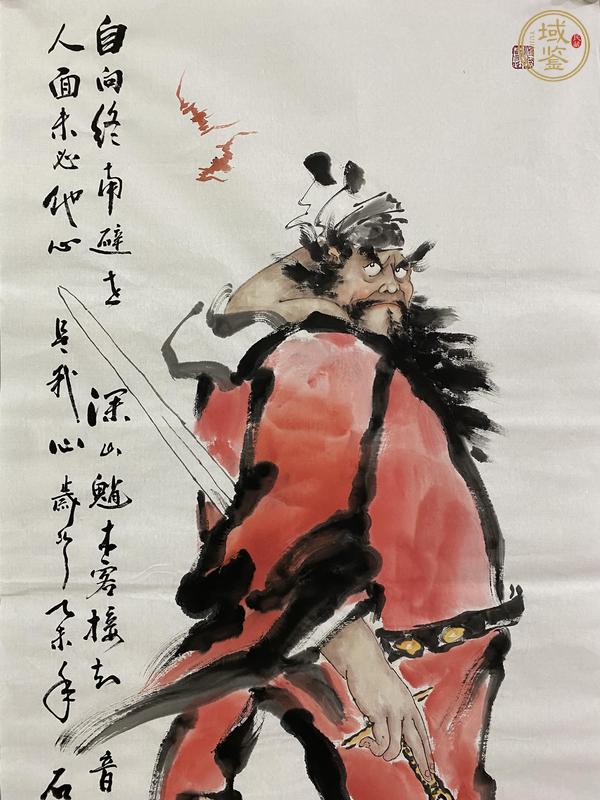 自向终南避世深山魈木客接知音
人面未必他心是我心歲次乙未年石
域鉴